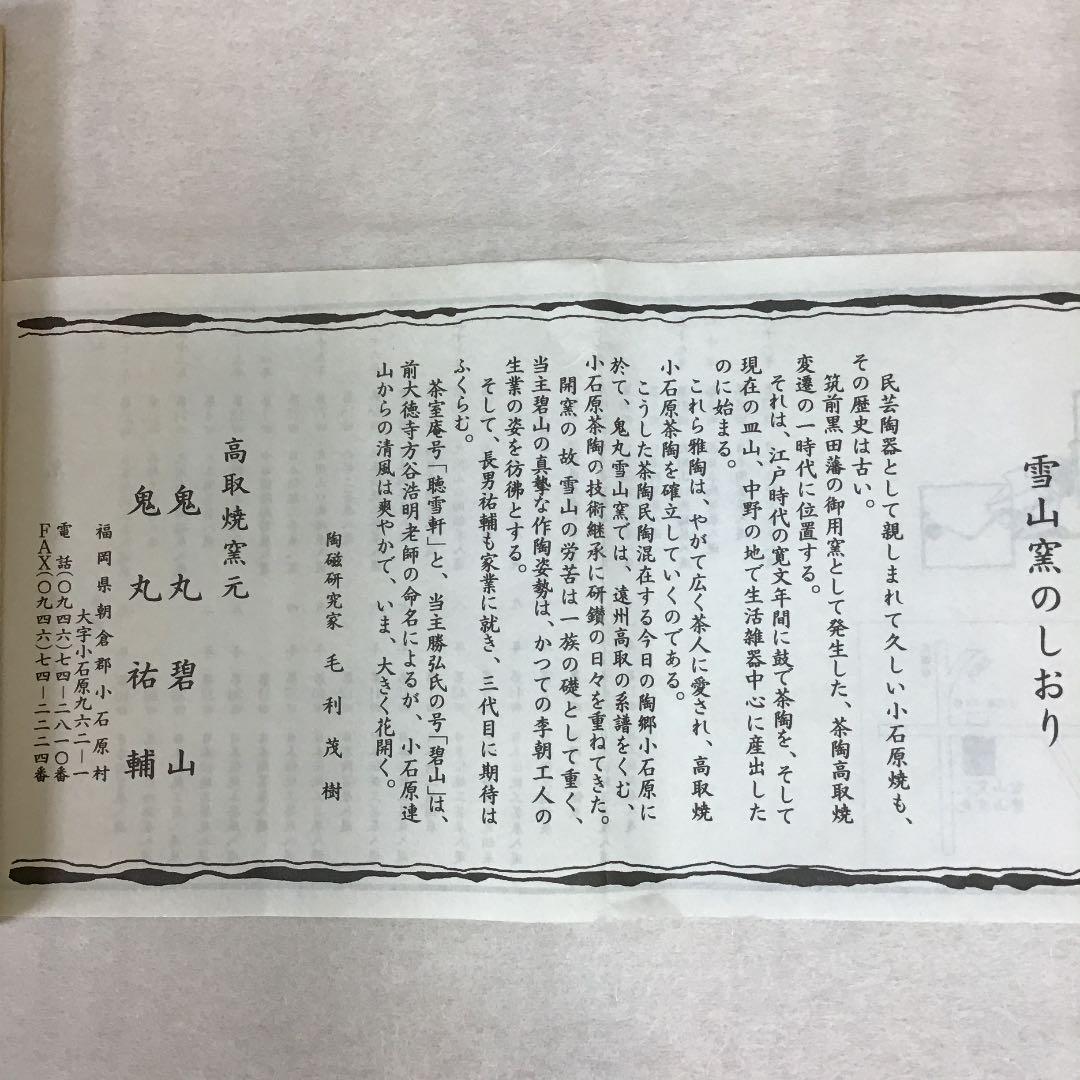 雪山窯のしおり
民芸陶器として親しまれて久しい小石原焼も、
その歴史は古い。
筑前黒田藩の御用窯として発生した、茶陶高取焼
変遷の一時代に位置する。
それは、江戸時代の寛文年間に鼓で茶陶を、そして
現在の皿山、中野の地で生活雑器中心に産出した
のに始まる。
これら雅陶は、やがて広く茶人に愛され、高取焼
小石原茶陶を確立していくのである。
こうした茶陶民陶混在する今日の陶郷小石原に
於て、鬼丸雪山窯では、遠州高取の系譜をくむ、
小石原茶陶の技術継承に研鑽の日々を重ねてきた。
開窯の故雪山の労苦は一族の礎として重く、
当主碧山の真摯な作陶姿勢は、かつての李朝工人の
生業の姿を彷彿とする。
そして、長男祐輔も家業に就き、三代目に期待は
ふくらむ。
茶室庵号「聴雪軒」と、当主勝弘氏の号「碧山」は、
前大徳寺方谷浩明老師の命名によるが、小石原連
山からの清風は爽やかで、いま、大きく花開く。
陶磁研究家 毛利茂樹
高取焼窯元
鬼丸碧山
鬼丸祐輔
福岡県朝倉郡小石原村
大字小石原九六二―一
電話(〇九四六)七四―二八一〇番
FAX(〇九四六)七四―二二二四番